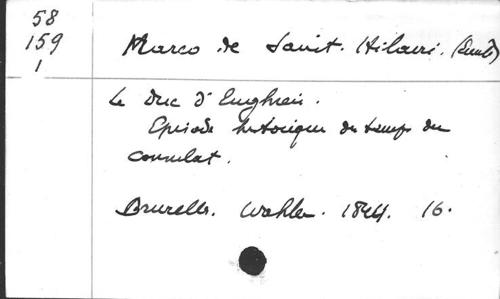 58
159
1
Marco de Saint. Hilaire. (Emile)
Le Duc d'Enghien.
Episode historique du temps du
consulat.
Bruxelles. Wahlen. 1844. 16.